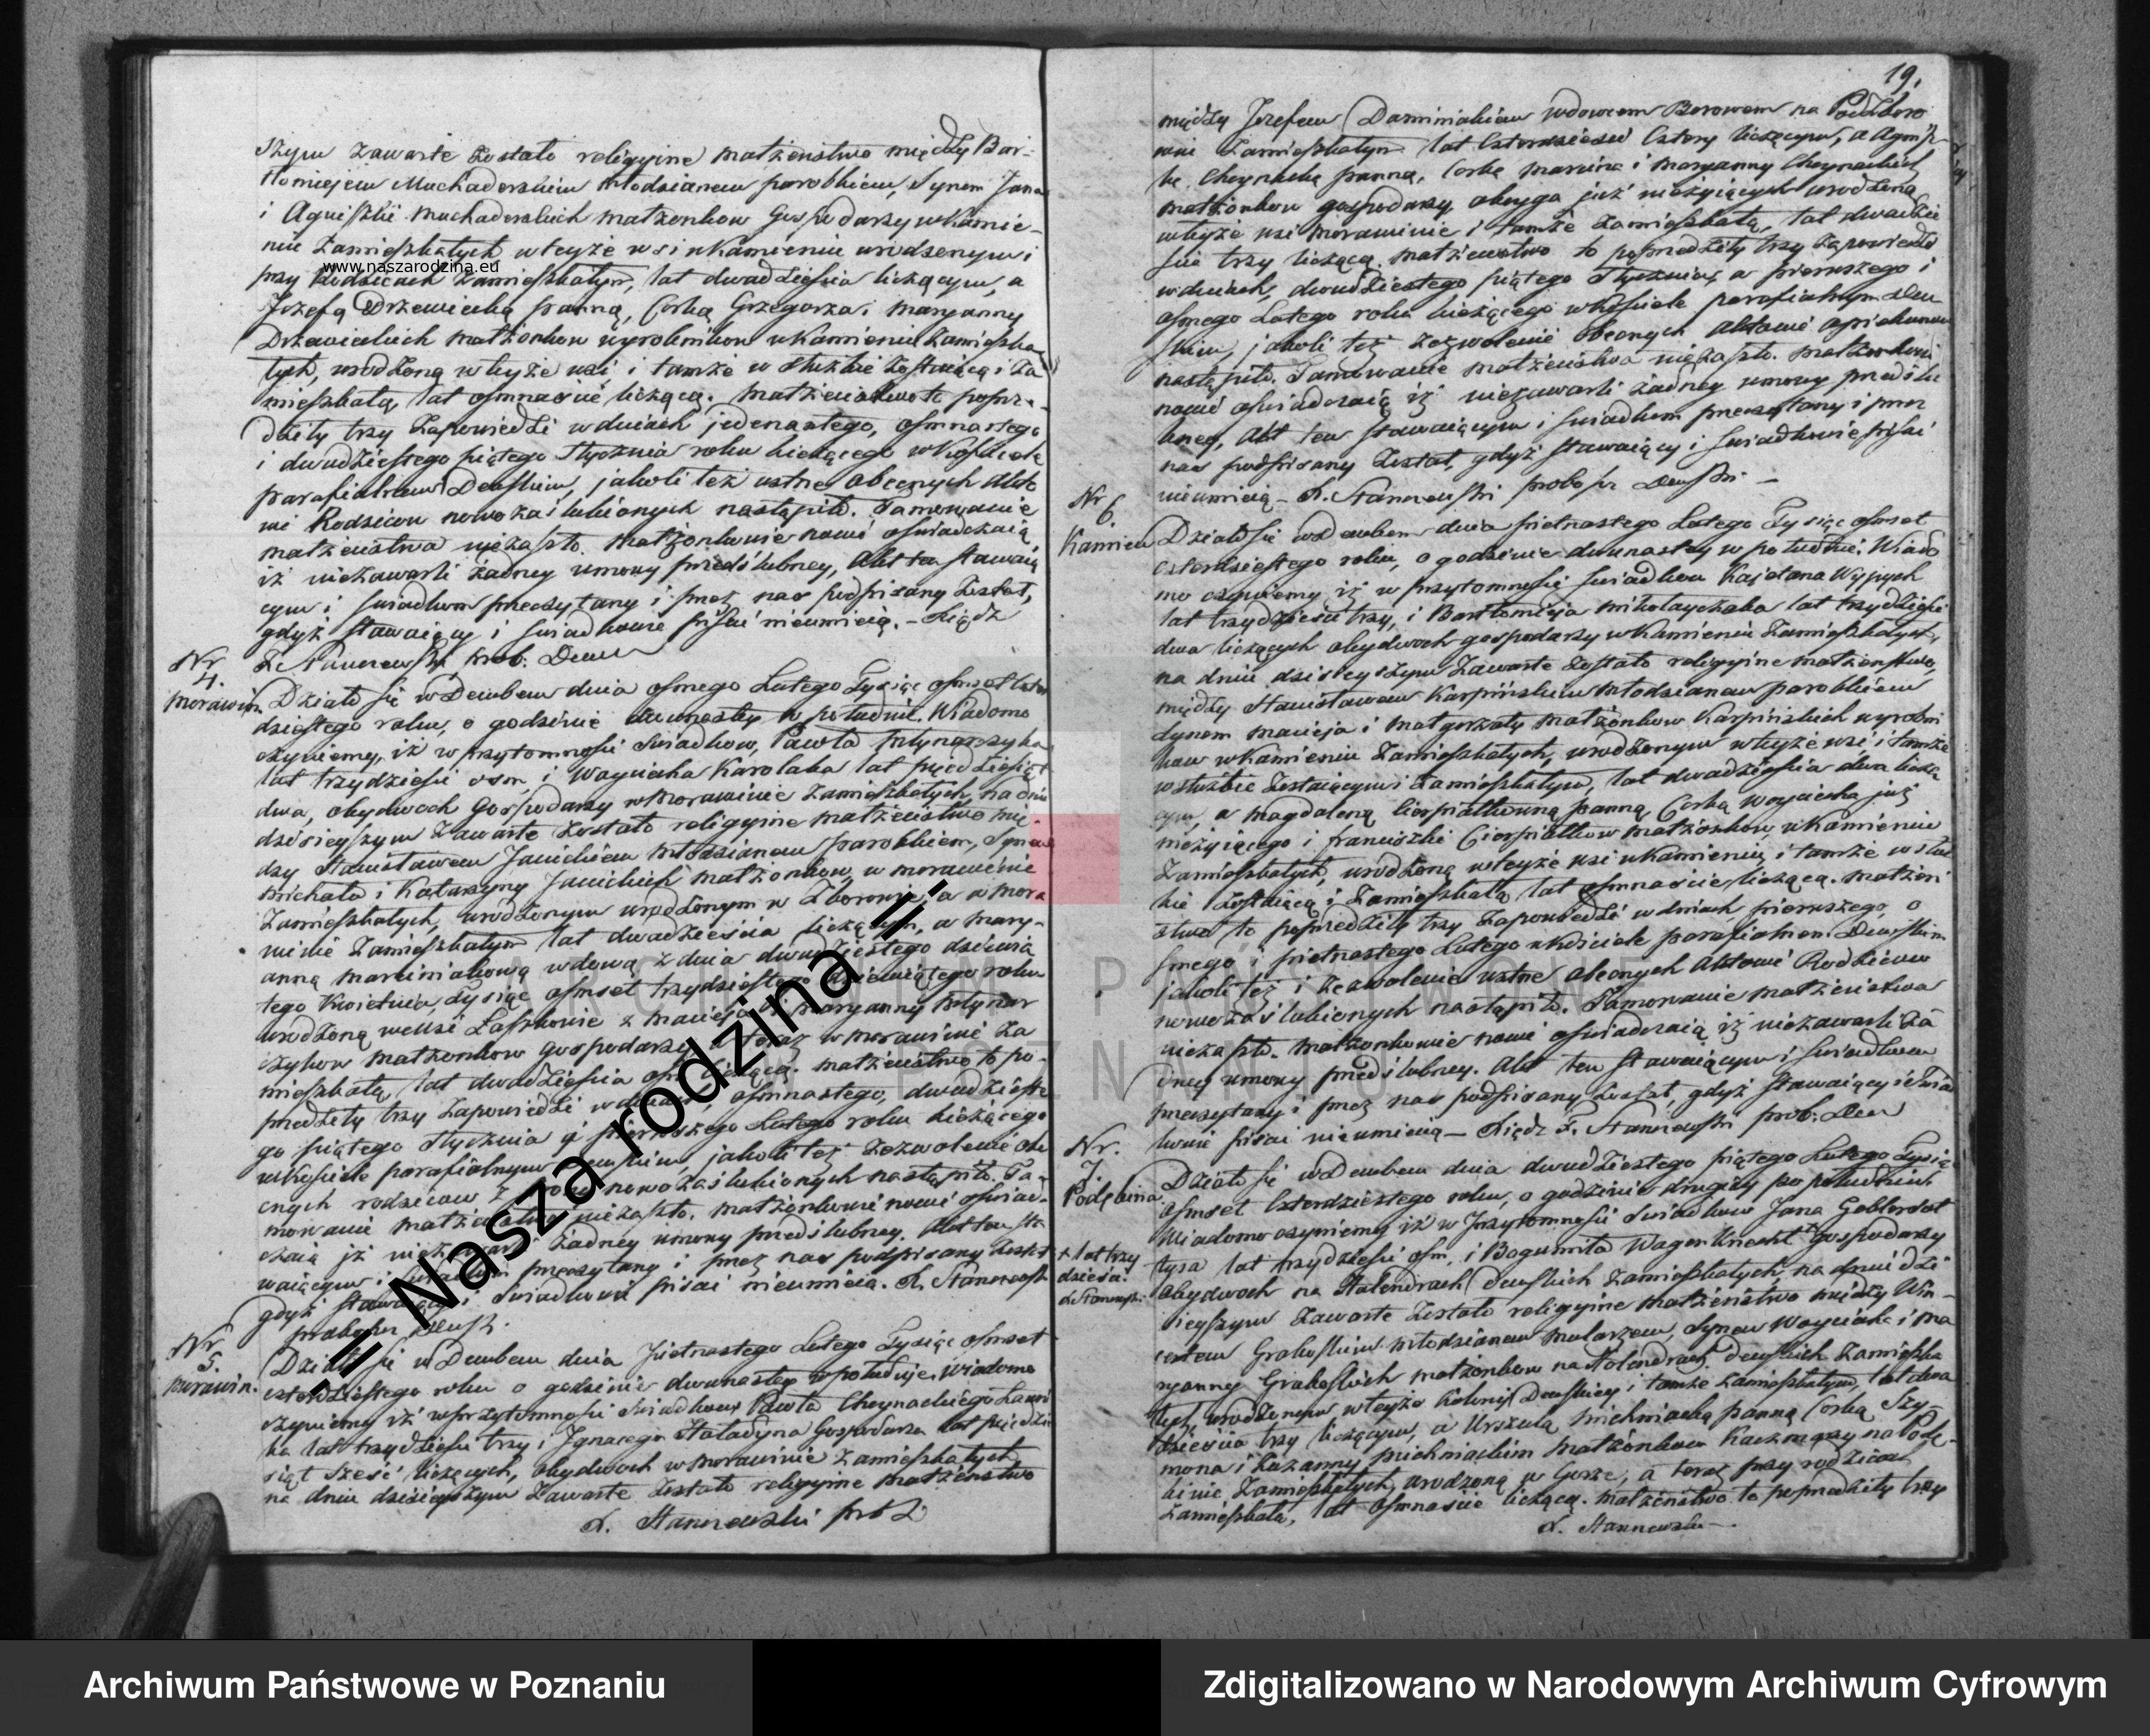 szym zawarte zostało religijne małżeństwo między Bar-
tłomiejem Muchaderskim młodzianem parobkiem, Synem Jana
i Agniszki Muchaderskich małżonkow Gospodarzy w Kamie-
niu Zamięszkałych w teyże wsi w Kamieniu urodzonym i
www.naszarodzina.eu
przy Rodzicach Zamięszkałym, lat dwadzieścia liczącym, a
Jozefą Drzewiecką panną, Corką Grzegorza i Maryanny
Drzewieckich małżonkow wyrobnikow w Kamieniu Zamięszka
łych, urodzoną w teyże wsi i tamże w służbie Zostaiącą i Za
mięszkałą, lat osmnaście liczącą. Małżeństwo to poprze-
dziły trzy Zapowiedzi w dniach jedenastego, osmnastego
i dwudziestego piątego Stycznia roku bieżącego w Kościele
parafialnem Dembskim, jakoli też ustne obecnych Akto
wi Rodzicow nowozaślubionych nastąpiło. Tamowanie
małżeństwa niezaszło. Małżonkowie nowi oświadczaią
iż niezawarli żadney umowy przedślubney, Akt ten stawaią
cym i świadkom przeczytany i przez nas podpisany Został,
gdyż stawaiący i świadkowie pisać nieumieią. - Xiądz
F. Stanczewski prob. Dem
Nr
4.
Morawin
Działo się w Dembem dnia osmego Lutego Tysiąc osmset czter
dziestego roku, o godzinie dwunastey w południe. Wiadomo
czyniemy, iż w przytomności świadkow, Pawła Młynarczyka
lat trzydzieści osm, i Woyciecha Karolaka lat pięćdziesiąt
dwa, obydwoch Gospodarzy w Morawinie Zamięszkałych, na dniu
dzisieyszym Zawarte zostało religijne małżeństwo mię-
dzy Stanisławem Janickiem młodzianem parobkiem, Synem
Michała i Katarzyny Janickich małżonkow, w Morawinie
Zamięszkałych, urodzonym urodzonym w Zborowie, a w Mora
winie Zamięszkałym lat dwadzieścia liczącym, a Mary-
anną Marciniakową wdową z dnia dwudziestego dziewią
tego Kwietnia, tysiąc osmset trzydziestego dziewiątego roku
urodzoną we wsi Łaszkowie z Macieja i Maryanny Młynar
czykow małżonkow Gospodarzy a teraz w Morawinie Za
mięszkałą, lat dwadzieścia osm liczącą. Małżeństwo to po-
przedziły trzy Zapowiedzi w dniach, osmnastego, dwudzieste
go piątego Stycznia i pierwszego Lutego roku bieżącego
w Kościele parafialnym Dembskim, jakoli też zezwolenie obe
cnych rodzicow z strony nowozaślubionych nastąpiło. Ta-
mowanie małżeństwa niezaszło. Małżonkowie nowi oświad-
czaią iż niezawarli Żadney umowy przedślubney. Akt ten sta
waiącym i świadkom przeczytany i przez nas podpisany Został
gdyż stawaiący i świadkowie pisać nieumieią. X. Stanczewski
proboszcz Dembsk.
Nr
5.
Morawin.
Działo się w Dembem dnia Piętnastego Lutego Tysiąc osmset
czterdziestego roku o godzinie dwunastey w południe, wiadomo
czyniemy iż w przytomności świadkow Pawła Choynackiego Ławni
ka lat trzydzieści trzy i Ignacego Gospodarza lat pięćdzie
siąt sześć liczących, obydwoch w Morawinie Zamięszkałych
na dniu dzisieyszym Zawarte zostało religijne małżeństwo
X. Stanczewski prob D
19.
między Jozefem Daminiakiem wdowcem Borowem na Podzboro
wiu Zamięszkałym lat Czterdzieści Cztery liczącym, a Agnisz-
ką Choynacką panną, Corką Marcina i Maryanny Choynackich
małżonkow gospodarzy, oboyga już nieżyiących urodzoną
w teyże wsi Morawinie i tamże Zamięszkałą, lat dwadzie
ścia trzy liczącą. Małżeństwo to poprzedziły trzy Zapowiedzi
w dniach, dwudziestego piątego Stycznia, a pierwszego i
osmego Lutego roku bieżącego w Kościele parafialnym Dem
skim, jakoli też zezwolenie obecnych Aktowi opiekunow
nastąpiło. Tamowanie małżeństwa niezaszło. Małżonkowie
nowi oświadczaią iż niezawarli żadney umowy przedślu
bney, Akt ten stawaiącym i świadkom przeczytany i przez
nas podpisany Został, gdyż stawaiący i świadkowie pisać
nieumieią - X. Stanczewski proboszcz Dembski -
Nr
6.
Kamień
Działo się w Dembem dnia piętnastego Lutego Tysiąc osmset
czterdziestego roku, o godzinie dwunastey w południe. Wiado
mo czyniemy iż w przytomności świadkow Kajetana
lat trzydzieści trzy, i Bartłomieja Mikołayczaka lat trzydzieści
dwa liczących obydwoch gospodarzy w Kamieniu Zamięszkałych,
na dniu dzisieyszym Zawarte Zostało religijne małżeństwo,
między Stanisławem Karpińskim młodzianem parobkiem
synem Macieja i Małgorzaty małżonkow Karpińskich wyrobni
kow w Kamieniu Zamięszkałych, urodzonym w teyże wsi, i tamże
w służbie Zostaiącym i Zamięszkałym, lat dwadzieścia dwa liczą
cym, a Magdaleną Cierpiałkowną panną, Corką Woyciecha już
nieżyiącego i Franciszki Cierpiałkow małżonkow w Kamieniu
Zamięszkałych, urodzoną w teyże wsi w Kamieniu, i tamże w służ
bie Zostaiącą i Zamięszkałą lat osmnaście liczącą. Małżeń
stwo to poprzedziły trzy Zapowiedzi w dniach pierwszego, o
smego i piętnastego Lutego w Kościele parafialnem Dembskim
jakoli też i zezwolenie ustne obecnych Aktowi Rodzicow
nowozaślubionych nastąpiło. Tamowanie małżeństwa
niezaszło. Małżonkowie nowi oświadczaią iż niezawarli ża
dney umowy przedślubney. Akt ten stawaiącym i świadkom
przeczytany i przez nas podpisany Został, gdyż stawaiący i świa
dkowie pisać nieumieią - Xiądz F. Stanczewski prob: Dem
Nr.
7.
Podzbina
Działo się w Dembem dnia dwudziestego piątego Lutego Tysiąc
osmset Czterdziestego roku, o godzinie drugiey po południu,
Wiadomo czyniemy iż w przytomności świadkow Jana
lat trzydzieści osm, i Bogumiła Wagenknecht + Gospodarzy
+ lat trzy
dzieści.
X. Stanczewski
obydwoch na Holendrach Dembskich Zamięszkałych, na dniu dzi
sieyszym Zawarte Zostało religijne małżeństwo między Win-
centem Grabskim młodzianem malarzem, Synem Woyciecha i Ma
ryanny Grabskich małżonkow na Holendrach Dembskich Zamięszka
łych, urodzonym w teyże Kolonij Dembskiey i tamże Zamięszkałym, lat dwa
dzieścia trzy liczącym, a Urszulą Michniacką panną Corką Szy-
mona i Zuzanny Michniackich małżonkow Karczmarzy na
Zamięszkałych, urodzoną w Gorze, a teraz przy rodzicach
Zamięszkałą, lat osmnaście liczącą. Małżeństwo to poprzedziły trzy
X. Stanczewski
-= Nasza rodzina =-
ARCHIWUM PAŃSTWOWE
W POZNANIU
Archiwum Państwowe w Poznaniu
Zdigitalizowano w Narodowym Archiwum Cyfrowym